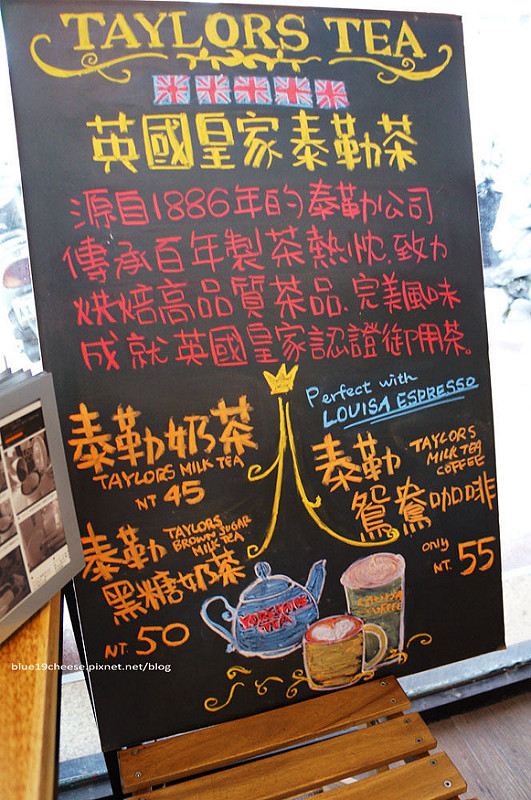 TAYLORS TEA
英國皇家泰勒茶
源自1886年的泰勒公司
傳承百年製茶熱忱.致力
烘焙高品質茶品.完美風味
成就英國皇家認證御用茶。
Perfect with
LOUISA ESPRESSO
泰勒奶茶
TAYLORS MILK TEA
NT 45
泰勒
TAYLORS
BROWN SUGAR
MILK TEA
黑糖奶茶
NT. 50
泰勒
TAYLORS
MILK TEA
COFFEE
鴛鴦咖啡
only
NT. 55
YORKSHIRE
TEA
LOUISA
COFFEE
blue19cheese.pixnet.net/blog